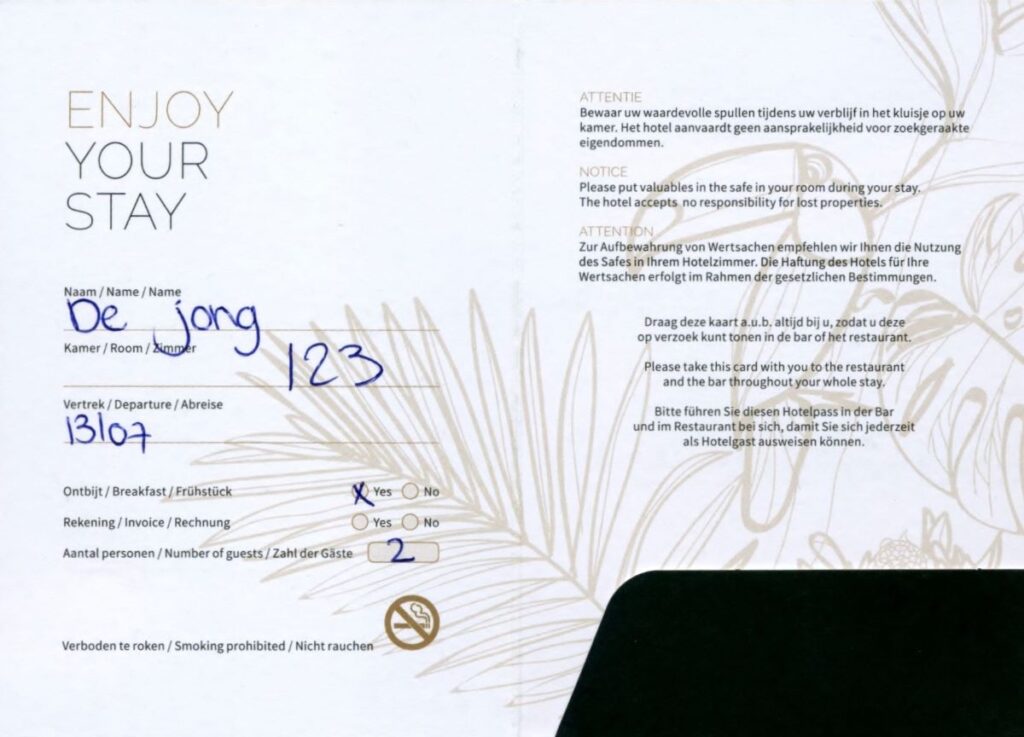 ENJOY
YOUR
STAY
Naam / Name / Name
De jong
Kamer / Room / Zimmer
123
Vertrek / Departure / Abreise
13/07
Ontbijt / Breakfast / Frühstück X Yes No
Rekening / Invoice / Rechnung Yes No
Aantal personen / Number of guests / Zahl der Gäste 2
Verboden te roken / Smoking prohibited / Nicht rauchen
ATTENTIE
Bewaar uw waardevolle spullen tijdens uw verblijf in het kluisje op uw
kamer. Het hotel aanvaardt geen aansprakelijkheid voor zoekgeraakte
eigendommen.
NOTICE
Please put valuables in the safe in your room during your stay.
The hotel accepts no responsibility for lost properties.
ATTENTION
Zur Aufbewahrung von Wertsachen empfehlen wir Ihnen die Nutzung
des Safes in Ihrem Hotelzimmer. Die Haftung des Hotels für Ihre
Wertsachen erfolgt im Rahmen der gesetzlichen Bestimmungen.
Draag deze kaart a.u.b. altijd bij u, zodat u deze
op verzoek kunt tonen in de bar of het restaurant.
Please take this card with you to the restaurant
and the bar throughout your whole stay.
Bitte führen Sie diesen Hotelpass in der Bar
und im Restaurant bei sich, damit Sie sich jederzeit
als Hotelgast ausweisen können.